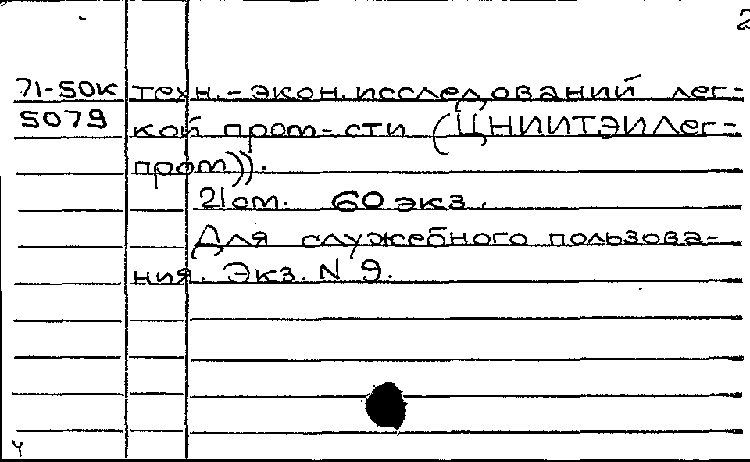 2
71-50К техн.-экон.исследований лег-
5079 кой пром-сти (ЦНИИТЭИлег-
пром)).
21 см. 60 экз.
Для служебного пользова-
ния. Экз. N 9.